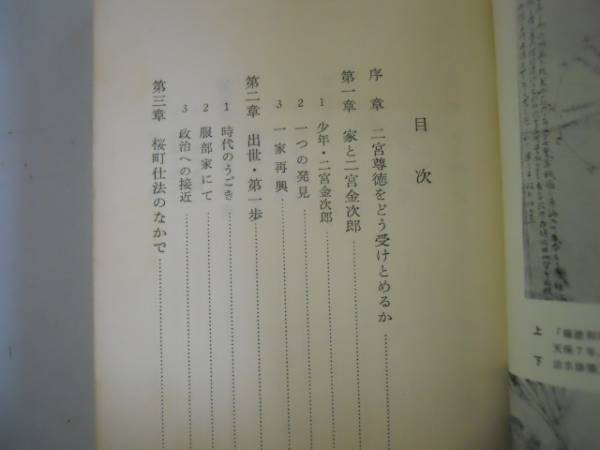 目次
序章 二宮尊徳をどう受けとめるか
第一章 家と二宮金次郎
1 少年・二宮金次郎
2 一つの発見
3 一家再興
第二章 出世・第一歩
1 時代のうごき
2 服部家にて
3 政治への接近
第三章 桜町仕法のなかで
上
天保7年
下